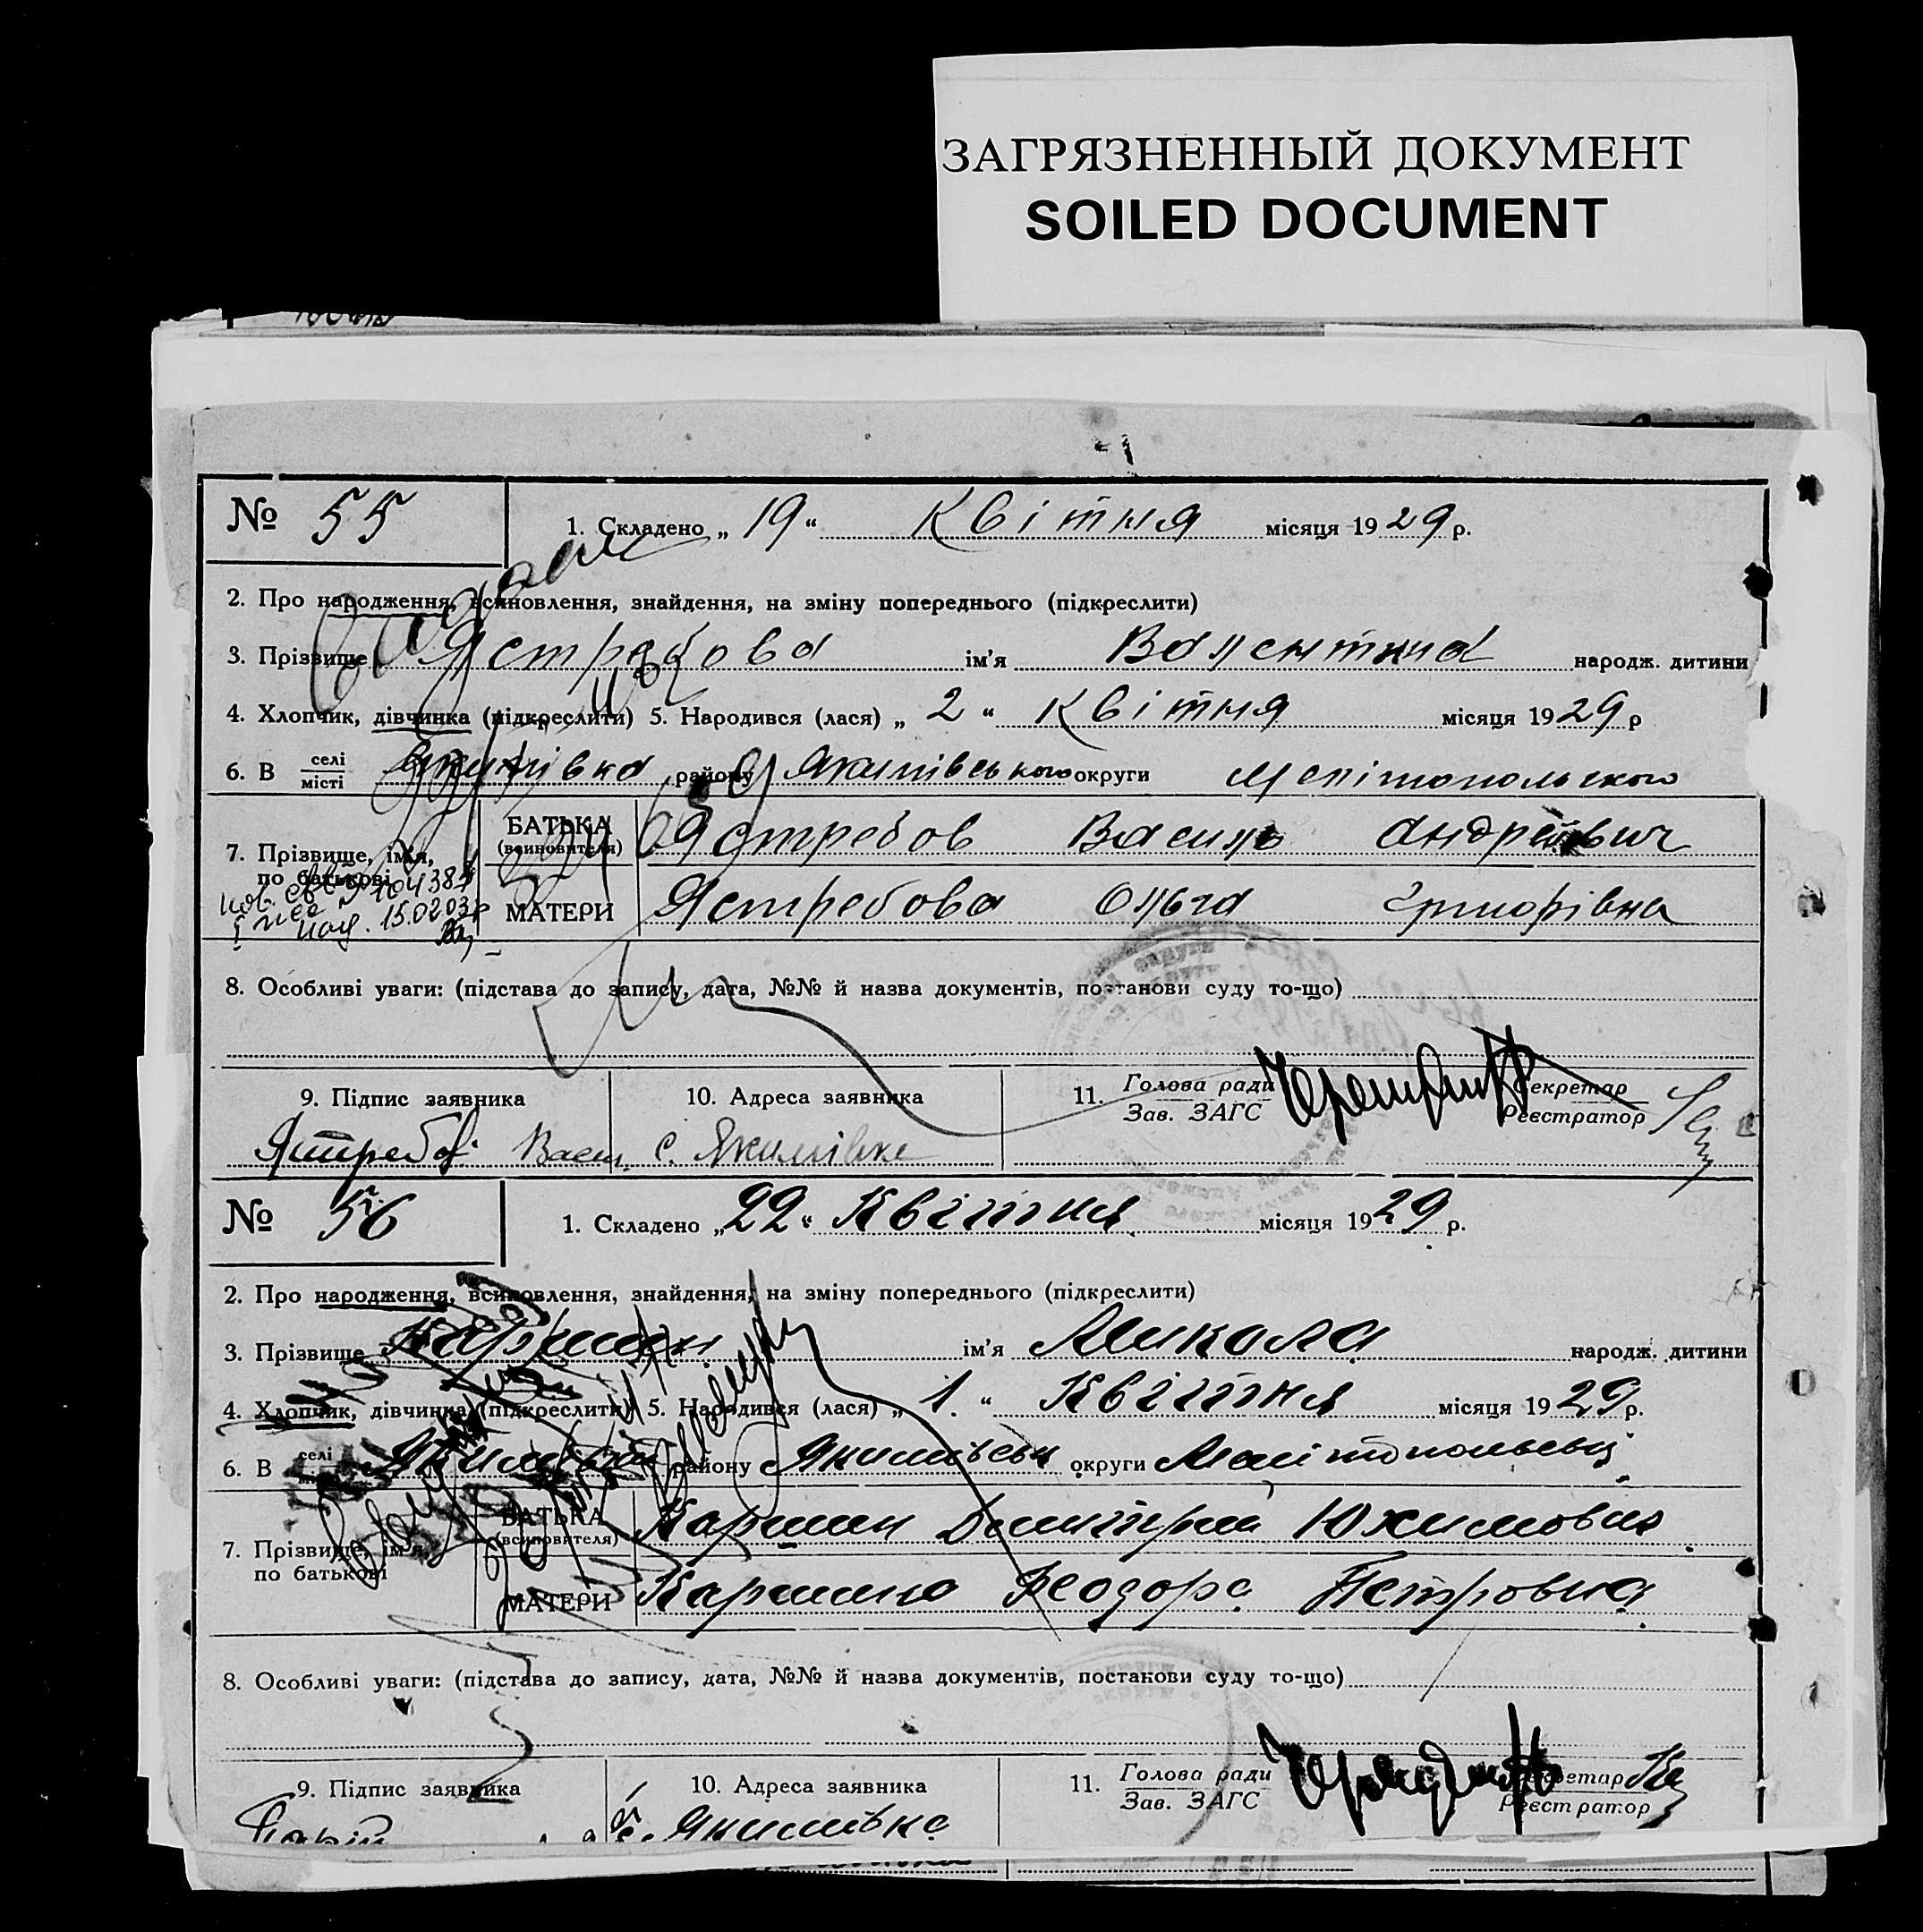 ЗАГРЯЗНЕННЫЙ ДОКУМЕНТ
SOILED DOCUMENT
№ 55
1. Складено „ 19 “ Квітня місяця 1929 р.
2. Про народження, всиновлення, знайдення, на зміну попереднього (підкреслити)
3. Прізвище Ястребова ім'я Валентина народж. дитини
4. Хлопчик, дівчинка (підкреслити) 5. Народився (лася) „ 2 “ Квітня місяця 1929 р
6. В селі місті Якимівка району Якимівського округи Мелітопольского
7. Прізвище, ім'я, по батькові
БАТЬКА (всиновителя) Ястребов Василь Андрейович
МАТЕРИ Ястребова Ольга
15.02.03р
8. Особливі уваги: (підстава до запису, дата, №№ й назва документів, постанови суду то-що)
9. Підпис заявника 10. Адреса заявника 11. Голова ради Зав. ЗАГС Секретар Реєстратор
Ястребов Васил с. Якимівка
№ 56
1. Складено „ 22 “ Квітня місяця 1929 р.
2. Про народження, всиновлення, знайдення, на зміну попереднього (підкреслити)
3. Прізвище Каршин ім'я Микола народж. дитини
4. Хлопчик, дівчинка (підкреслити) 5. Народився (лася) „ 1. “ Квітня місяця 1929 р.
6. В селі Якимівка району Якимівськ округи
7. Прізвище, ім'я, по батькові
БАТЬКА (всиновителя) Каршин Дмитрий Юхимович
МАТЕРИ Каршина Феодора Петровна
8. Особливі уваги: (підстава до запису, дата, №№ й назва документів, постанови суду то-що)
9. Підпис заявника 10. Адреса заявника 11. Голова ради Зав. ЗАГС Секретар Реєстратор
с. Якимівка